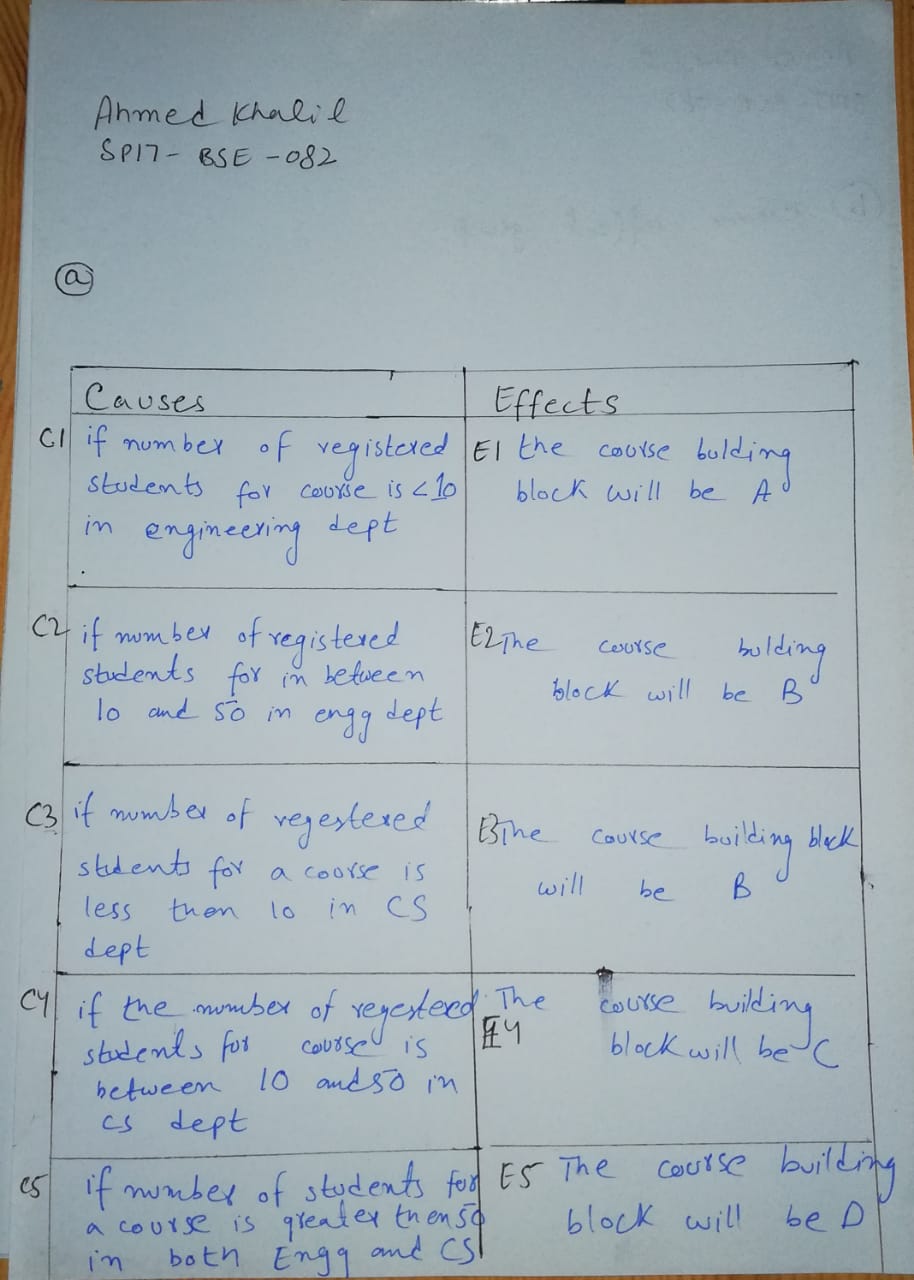 Ahmed Khalil
SP17- BSE -082
a
Causes
Effects
C1 if number of registered
students for course is <10
in engineering dept
E1 the course bulding
block will be A
C2 if number of registered
students for in between
10 and 50 in engg dept
E2 The course bulding
block will be B
C3 if number of regestered
students for a course is
less then 10 in CS
dept
E3 The course building block
will be B
C4 if the number of regestered
students for course is
between 10 and 50 in
CS dept
The course building
E4 block will be C
C5 if number of students for
a course is greater then 50
in both Engg and CS
E5 The course building
block will be D